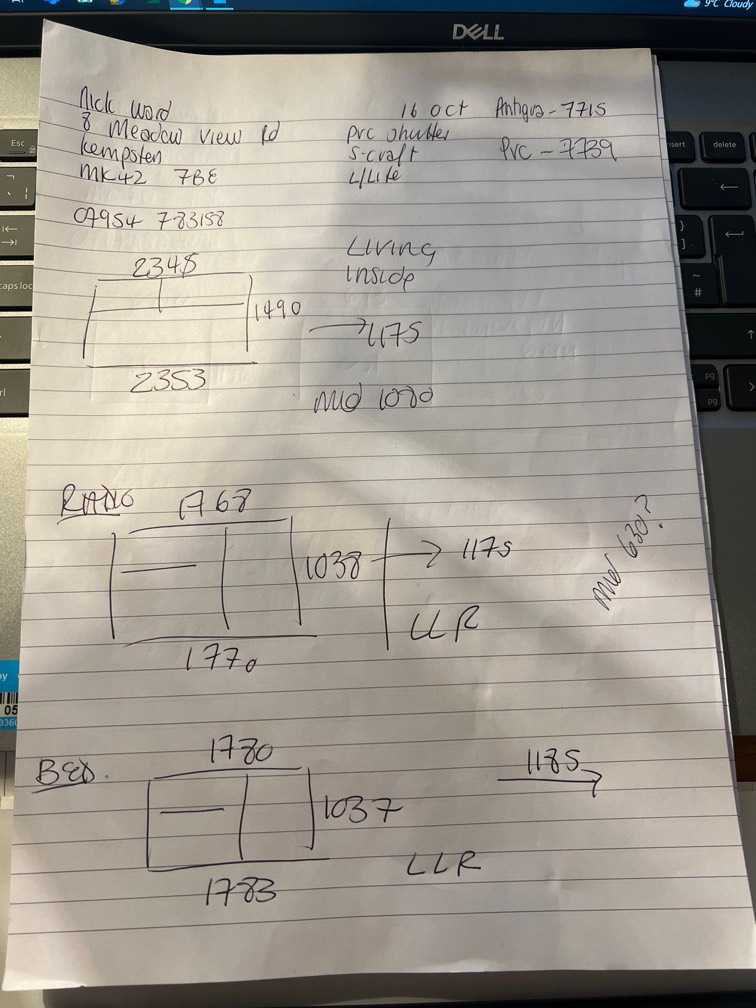 9°C Cloudy
DELL
Nick Ward
8 Meadow View Rd
Kempsten
MK42 7BE
07954 783158
16 Oct
PVC Shutter
S-craft
L/Lite
Antigua - 7715
PVC - 7739
Living
Inside
2348
1490
2353
→ 1175
Mid 1080
1768
1038
1770
→ 1175
LLR
Mid 630?
BED.
1780
1037
1783
1185
LLR
Esc
caps loc
insert
delete
pg
pg
05